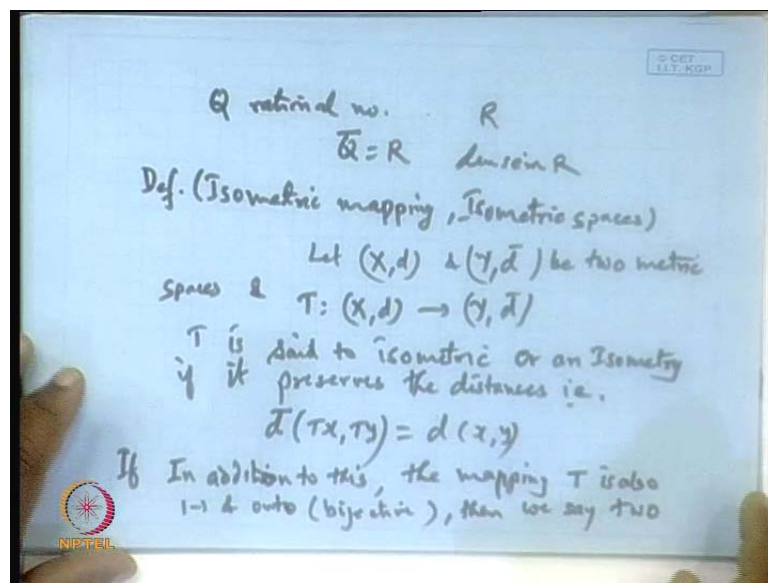 © CET
I.I.T. KGP
Q rational no. R
Q̄ = R dense in R
Def. (Isometric mapping, Isometric spaces)
Let (X,d) & (Y,d̄) be two metric
spaces & T: (X,d) → (Y,d̄)
T is said to isometric or an Isometry
if it preserves the distances i.e.
d̄(Tx,Ty) = d(x,y)
If In addition to this, the mapping T is also
1-1 & onto (bijective), then we say two
NPTEL